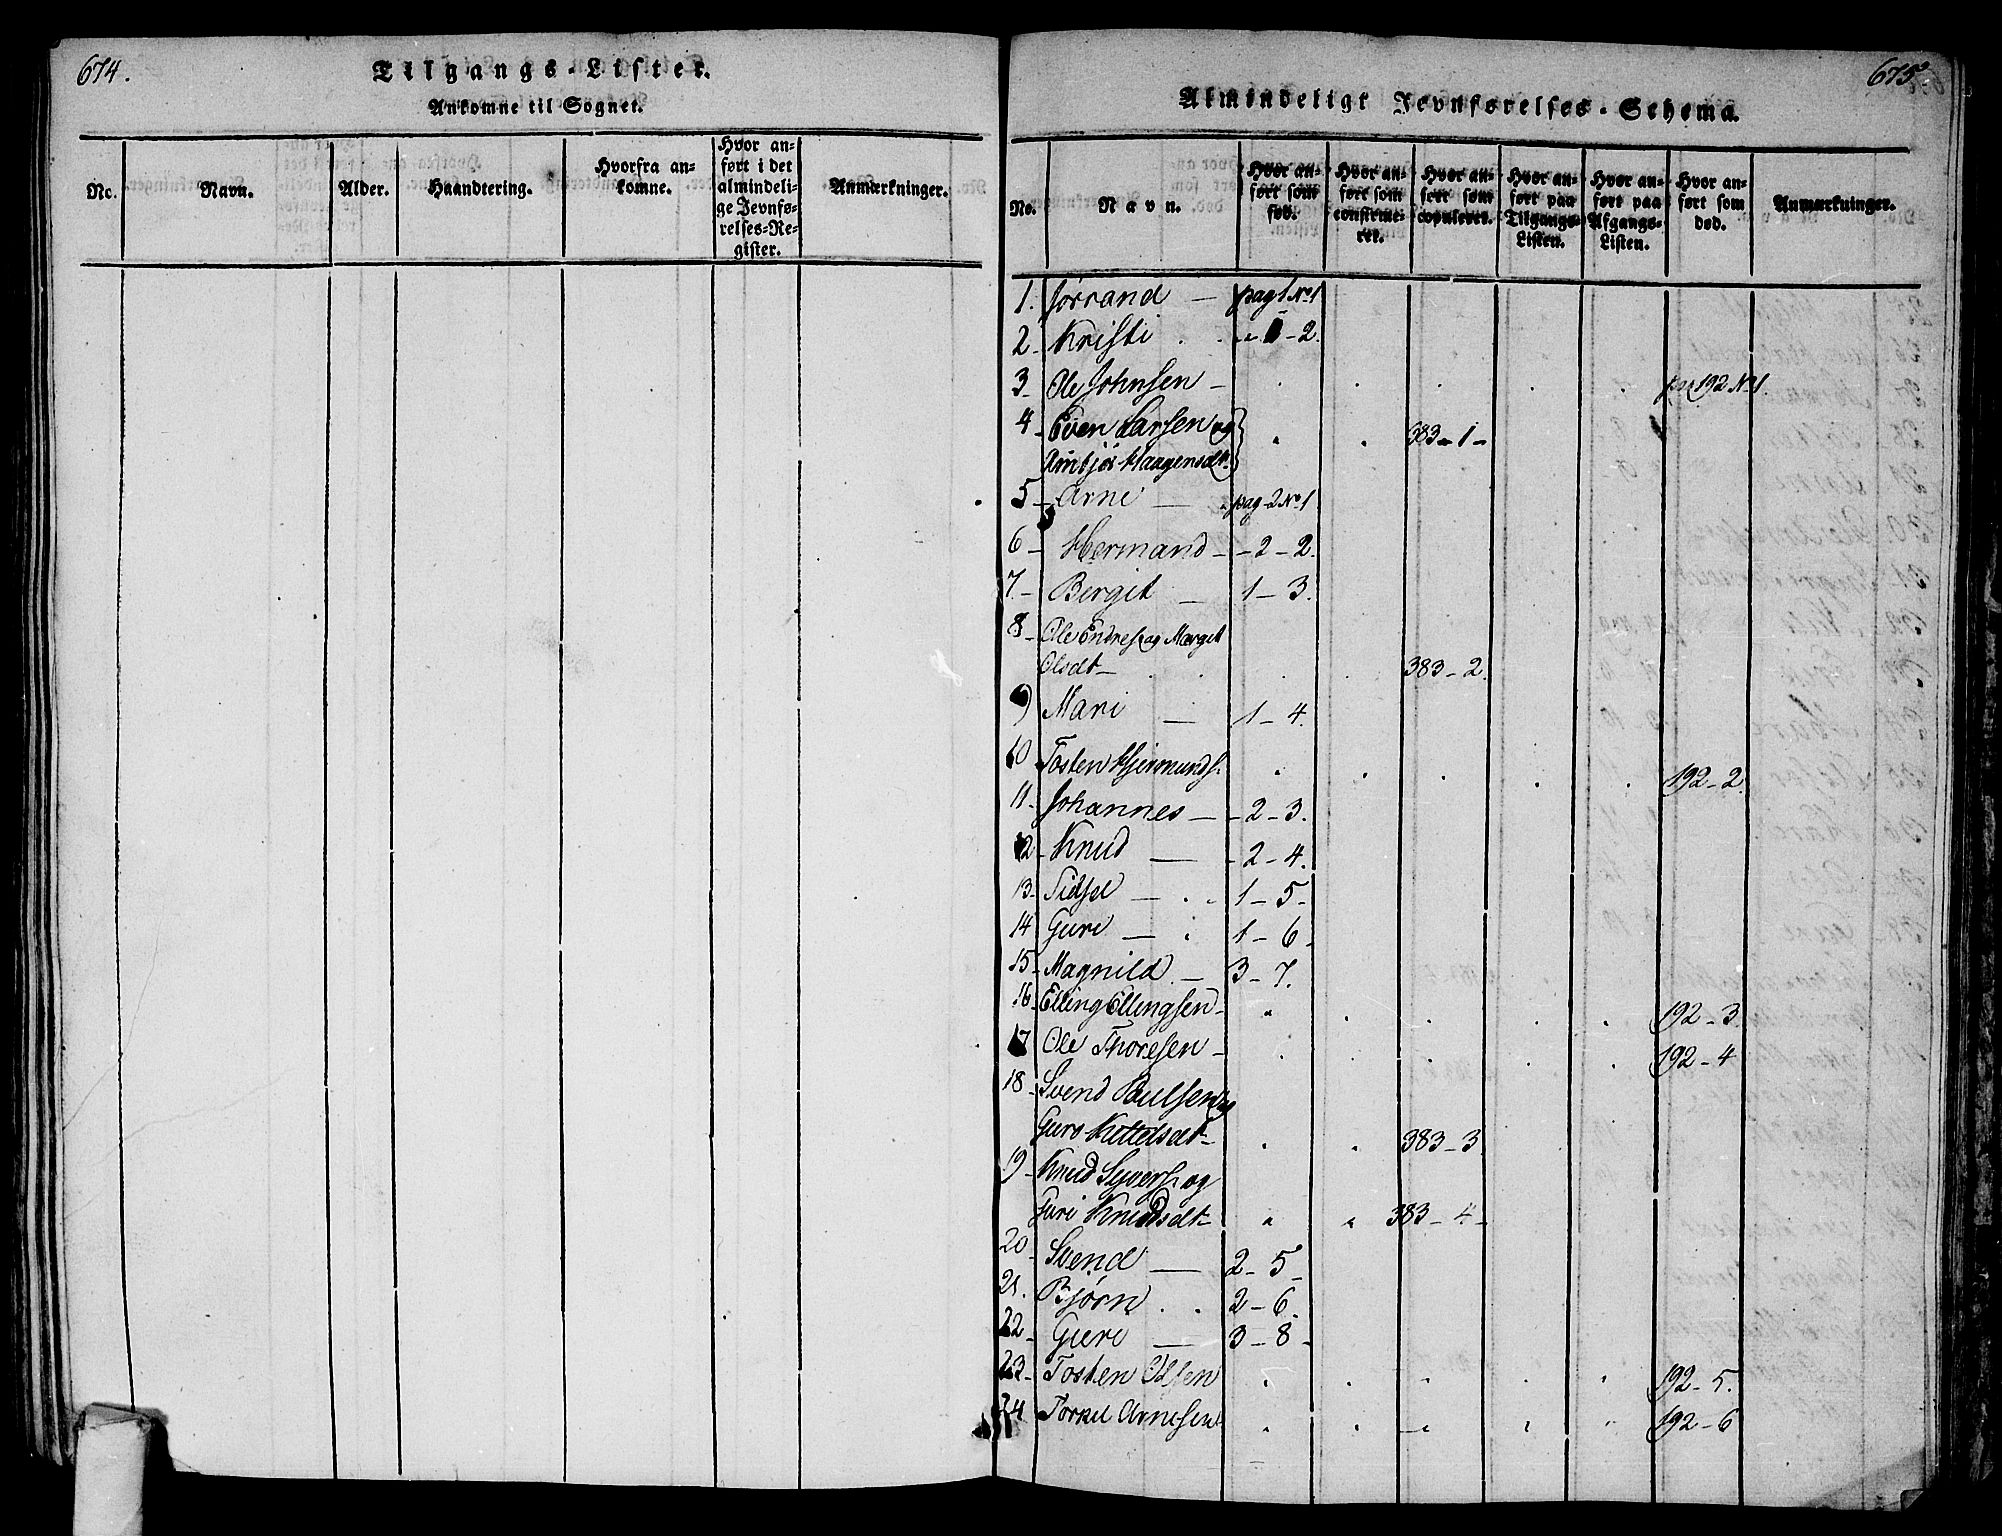 674.
Tilgangs-Lister.
Ankomne til Sognet.
No.
Navn.
Alder.
Haandtering.
Hvorfra an-
komne.
Hvor an-
ført i det
almindeli-
ge Jevnfø-
relses-Re-
gister.
Anmærkninger.
675
Almindeligt Jevnførelses-Schema.
No.
Navn.
Hvor an-
ført som
fød.
Hvor an-
ført som
confirme-
ret.
Hvor an-
ført som
copuleret.
Hvor an-
ført paa
Tilgangs-
Listen.
Hvor an-
ført paa
Afgangs-
Listen.
Hvor an-
ført som
død.
Anmærkninger.
1. Jørrand — pag 1 No 1
2. Kristi - 2.
3. Ole Johnsen - 192 No 1.
4 Even Larsen og
Haagensdt. 383 - 1 -
5 - Arne — pag - 2 No 1
6 - Hermand - - 2 - 2.
7 - Bergit — 1 - 3.
8 - Ole Endres. og Marget
Olsdt - 383 - 2.
9 Mari — 1 - 4.
10 Tosten Hjermunds. 192 - 2.
11 - Johannes - - 2 - 3.
12 - Knud — - 2 - 4.
13 - Sidsel — 1 - 5 -
14 Guri — 1 - 6 -
15 - Magnild - 3 - 7.
16 - Elling Ellingsen - 192 - 3.
17 Ole Thoresen - 192 - 4
18 - Svend Paulsen og
Guro Kittelsdt - 383 - 3
19 - Knud Syvers. og
Guri Knudsdt - 383 - 4 -
20 - Svend — 2 - 5 -
21. Bjørn . . 2 - 6.
22 - Guri — 3 - 8 -
23 - Tosten Olsen 192 - 5.
24 Torkel Arnesen 192 - 6